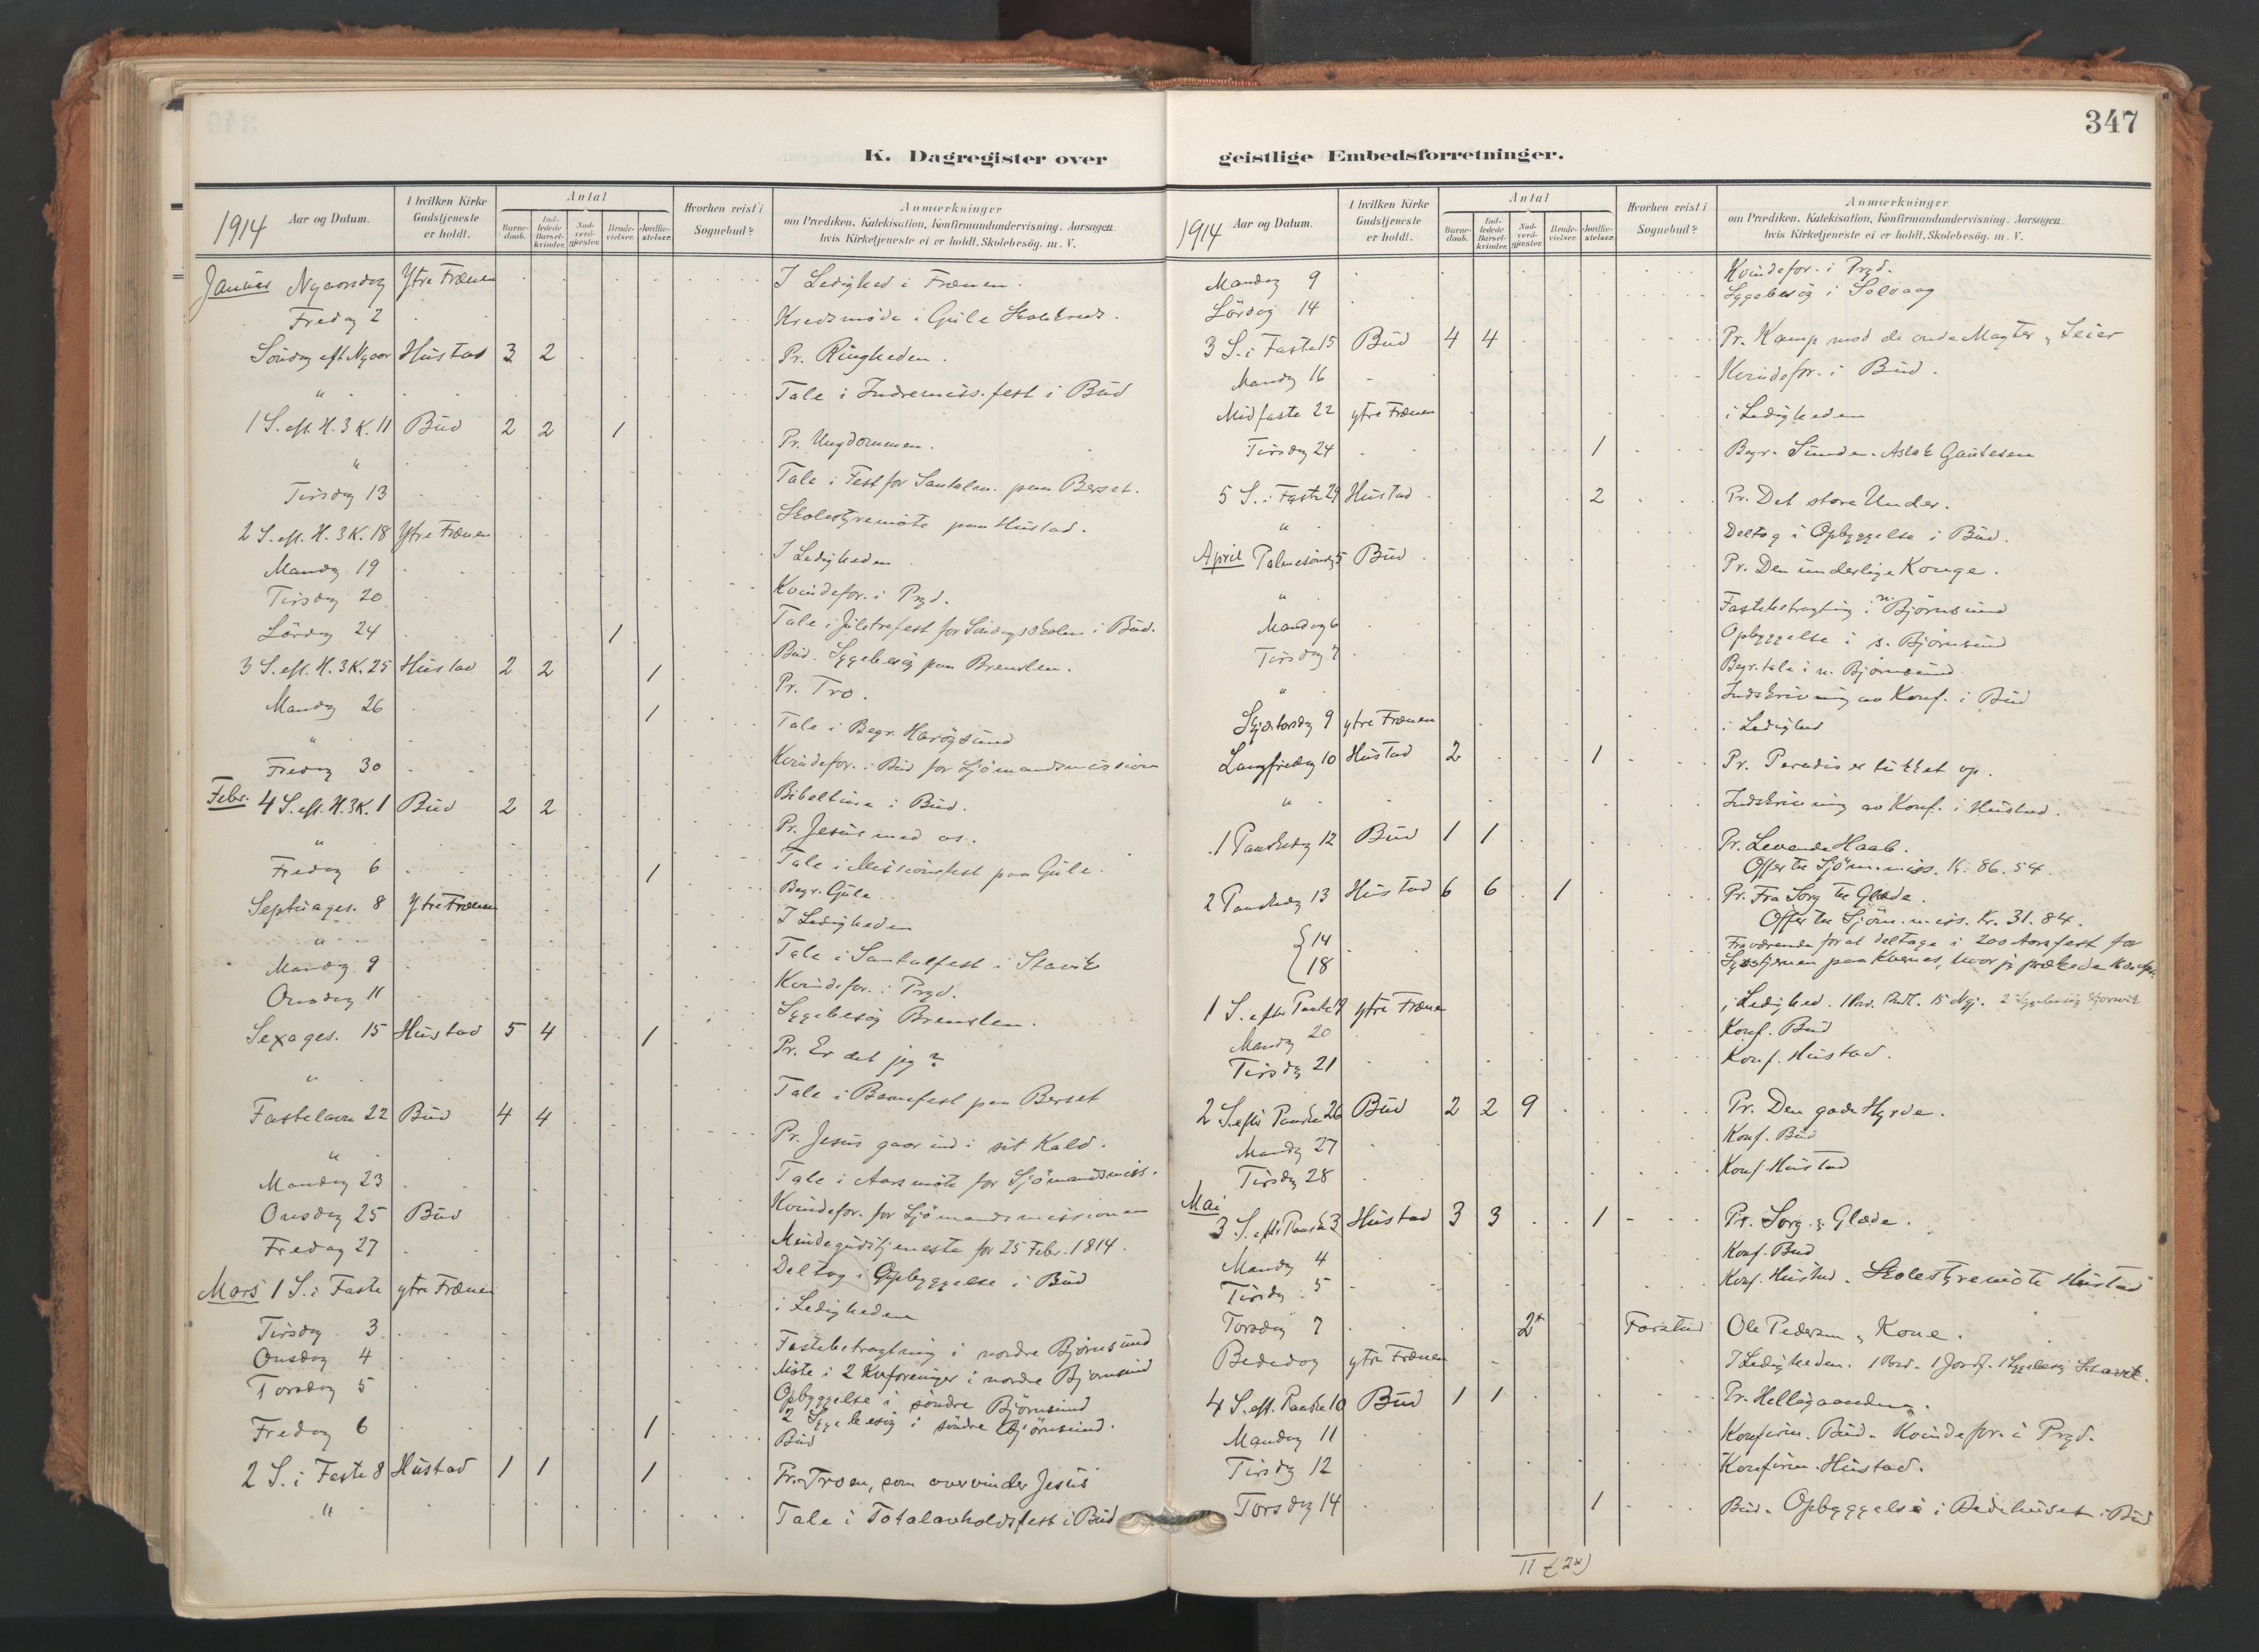 347
K. Dagregister over
geistlige Embedsforretninger.
1914 Aar og Datum. I hvilken Kirke Gudstjeneste er holdt. Antal Barne-daab. Ind-ledede Barsel-kvinder. Nad-verd-gjester. Brude-vielser. Jordfæ-stelser. Hvorhen reist i Sognebud? Anmærkninger om Prædiken, Katekisation, Konfirmandundervisning. Aarsagen hvis Kirketjeneste ei er holdt. Skolebesög. m. V.
Januar Nyaarsdag Ytre Frænen I Ledighed i Frænen.
Fredag 2 Kredsmøde i Gule Skolekreds.
Søndag eft Nyaar Hustad 3 2 Pr. Ringheden.
" Tale i Indremiss. fest i Bud
1 S. eft. H. 3 K. 11 Bud 2 2 1 Pr. Ungdommen.
" Tale i Fest for Santalm. paa Berset.
Tirsdag 13 Skolestyremøte paa Hustad.
2 S. eft. H. 3 K. 18 Ytre Frænen I Ledigheden
Mandag 19 Kvindefor. i Prgd.
Tirsdag 20 Tale i Juletrefest for Søndagsskolen i Bud.
Lørdag 24 1 Bud. Sygebesøg paa Brenslen.
3 S. eft. H. 3 K. 25 Hustad 2 2 1 Pr. Tro.
Mandag 26 1 Tale i Begr. Harøysund
" Kvindefor. i Bud for Sjømandsmission
Fredag 30 Bibeltime i Bud.
Febr. 4 S. eft. H. 3 K. 1 Bud 2 2 Pr. Jesus med os.
" Tale i Missionsfest paa Gule.
Fredag 6 1 Begr. Gule
Septuages. 8 Ytre Frænen I Ledigheden
" Tale i Santalfest i Stavik
Mandag 9 Kvindefor. i Prgd.
Onsdag 11 Sygebesøg Brenslen.
Sexages. 15 Hustad 5 4 1 Pr. Er det jeg?
" Tale i Barnefest paa Berset
Fastelavn 22 Bud 4 4 Pr. Jesus gaar ind i sit Kald.
" Tale i Aarsmøte for Sjømandsmiss.
Mandag 23 Kvindefor. for Sjømandsmissionen
Onsdag 25 Bud Mindegudstjeneste for 25 Febr. 1814.
Fredag 27 Deltog i Opbyggelse i Bud
Mars 1 S. i Faste ytre Frænen i Ledigheden
Tirsdag 3 Fastebetragtning i nordre Bjørnsund
Onsdag 4 Møte i 2 Kvforeninger i nordre Bjørnsund
Torsdag 5 Opbyggelse i søndre Bjørnsund
2 Sygebesøg i søndre Bjørnsund.
Fredag 6 1 Bud
2 S. i Faste 8 Hustad 1 1 1 Pr. Troen, som overvinder Jesus
" Tale i Totalavholdsfest i Bud
1914 Aar og Datum. I hvilken Kirke Gudstjeneste er holdt. Antal Barne-daab. Ind-ledede Barsel-kvinder. Nad-verd-gjester. Brude-vielser. Jordfæ-stelser. Hvorhen reist i Sognebud? Anmærkninger om Prædiken, Katekisation, Konfirmandundervisning. Aarsagen hvis Kirketjeneste ei er holdt. Skolebesög. m. V.
Mandag 9 Kvindefor. i Prgd.
Lördag 14 Sygebesøg i Solvaag
3 S. i Faste 15 Bud 4 4 Pr. Kamp mod de onde Magter, Seier
Mandag 16 Kvindefor. i Bud.
Midfaste 22 ytre Frænen i Ledigheden
Tirsdag 24 1 Begr. Aslak Gautesen
5 S. i Faste 29 Hustad 2 Pr. Det store Under.
" Deltog i Opbyggelse i Bud.
April Palmesöndag 5 Bud Pr. Den underlige Konge.
" Fastebetragtning i n. Bjørnsund
Mandag 6 Opbyggelse i s. Bjørnsund
Tirsdag 7 Begr.tale i n. Bjørnsund
" Indskrivning av Konf. i Bud
Skjærtorsdag 9 ytre Frænen i Ledighed
Langfredag 10 Hustad 2 1 Pr. Paradis er lukket op.
" Indskrivning av Konf. i Hustad.
1 Paaskedag 12 Bud 1 1 Pr. Levende Haab.
Offer til Sjöm.miss. Kr. 86.54.
2 Paaskedag 13 Hustad 6 6 1 Pr. Fra Sorg til Glæde.
Offer til Sjöm.miss. Kr. 31.84.
14 Fraværende for at deltage i 200 Aarsfest for
18 paa Kvernes, hvor jeg prækede
1 S. efter Paaske 19 ytre Frænen i Ledighed. 15 Ngj. 2 Sygebesøg
Mandag 20 Konf. Bud
Tirsdag 21 Konf. Hustad.
2 S. efter Paaske 26 Bud 2 2 9 Pr. Den gode Hyrde.
Mandag 27 Konf. Bud
Tirsdag 28 Konf. Hustad
Mai
3 S. efter Paaske 3 Hustad 3 3 1 Pr. Sorg & Glæde.
Mandag 4 Konf. Bud
Tirsdag 5 Konf. Hustad. Skolestyremöte Hustad
Torsdag 7 2* Farstad Ole Pedersen & Kone.
Bededag ytre Frænen I Ledigheden. 1 Jordf. 1 Sygebesøg Stavik.
4 S. eft. Paaske 10 Bud 1 1 Pr. Helligaanden.
Mandag 11 Konfirm. Bud. Kvindefor. i Prgd.
Tirsdag 12 Konfirm. Hustad.
Torsdag 14 1 Bud. Opbyggelse i Bedehuset i Bud
11 (2*)